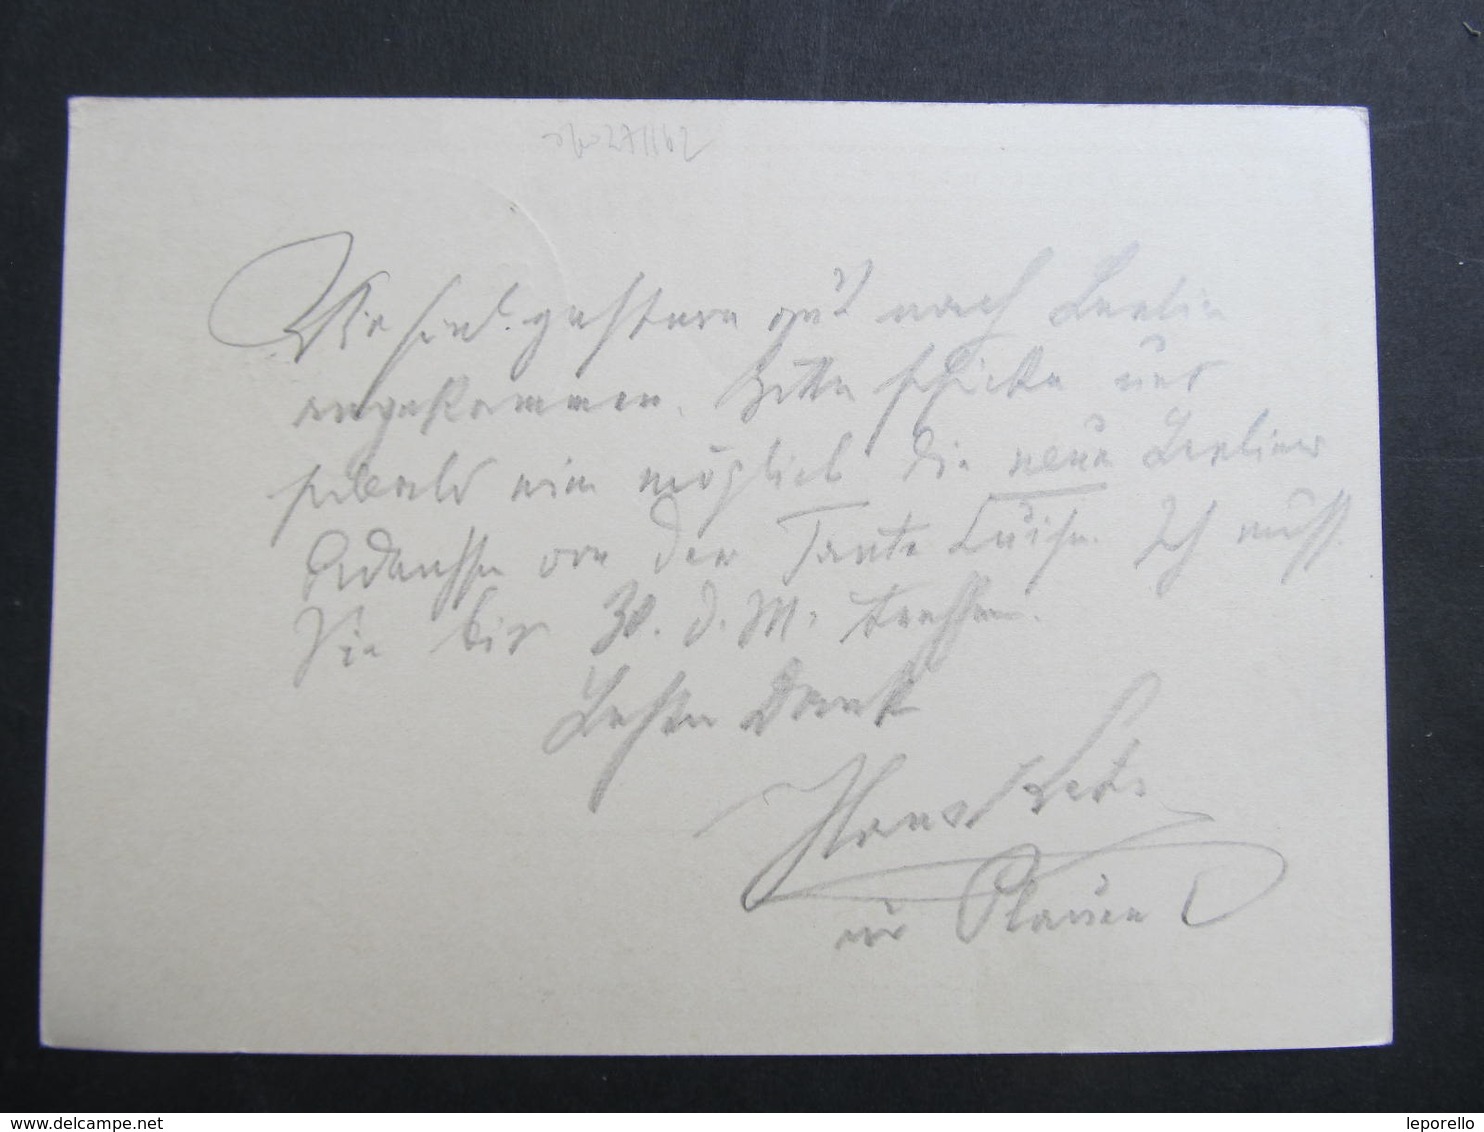 271162
Wir sind gestern gut nach Berlin
angekommen. Bitte schicke uns
sobald wie möglich die neue Berliner
Adresse von der Tante Luise. Ich muss
Sie bis 30. d. M. treffen.
Besten Dank
Hans
in Plauen
www.delcampe.net
leporello